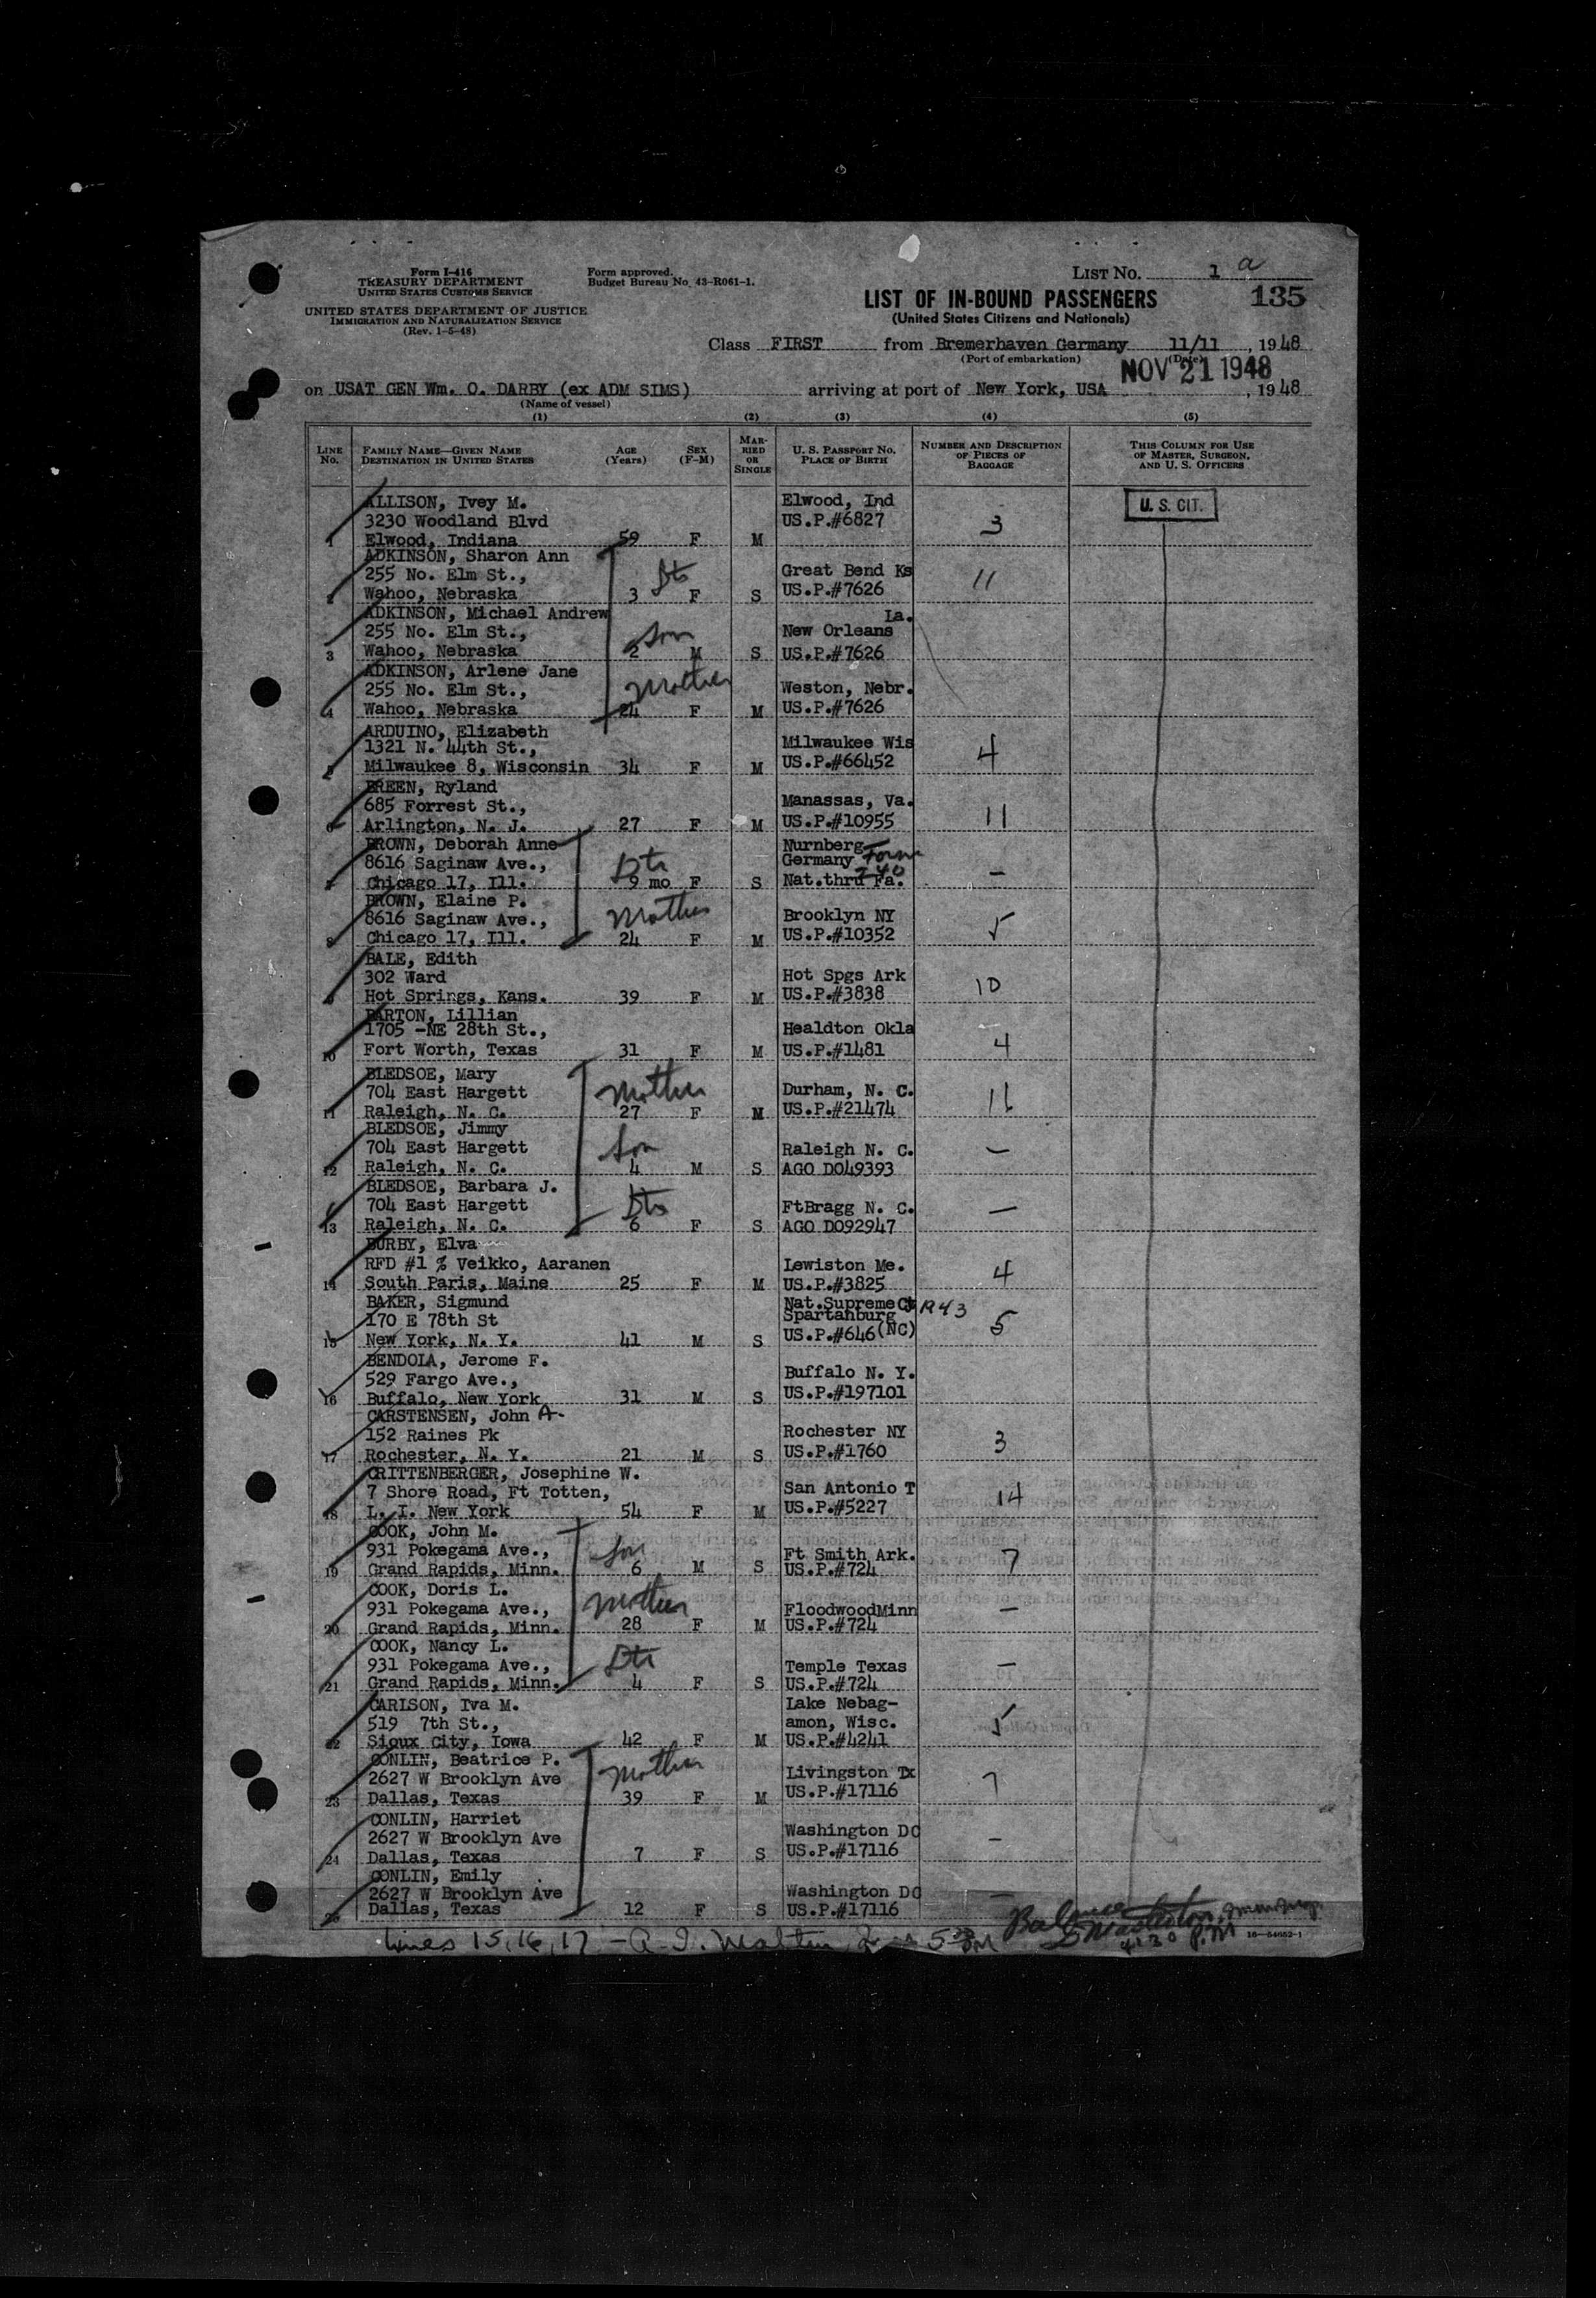 Form I-416
TREASURY DEPARTMENT
UNITED STATES CUSTOMS SERVICE
UNITED STATES DEPARTMENT OF JUSTICE
IMMIGRATION AND NATURALIZATION SERVICE
(Rev. 1-5-48)
Form approved.
Budget Bureau No. 43-R061-1.
LIST NO. 1 a
LIST OF IN-BOUND PASSENGERS
135
(United States Citizens and Nationals)
Class FIRST from Bremerhaven Germany 11/11, 1948
(Port of embarkation) (Date)
NOV 21 1948
on USAT GEN Wm. O. DARBY (ex ADM SIMS) arriving at port of New York, USA , 1948
(Name of vessel)
(1) (2) (3) (4) (5)
LINE No. FAMILY NAME—GIVEN NAME DESTINATION IN UNITED STATES AGE (Years) SEX (F-M) MARRIED OR SINGLE U. S. PASSPORT NO. PLACE OF BIRTH NUMBER AND DESCRIPTION OF PIECES OF BAGGAGE THIS COLUMN FOR USE OF MASTER, SURGEON, AND U. S. OFFICERS
ALLISON, Ivey M. Elwood, Ind U. S. CIT.
3230 Woodland Blvd US.P.#6827 3
1 Elwood, Indiana 59 F M
ADKINSON, Sharon Ann
255 No. Elm St., Dtr Great Bend Ks 11
2 Wahoo, Nebraska 3 F S US.P.#7626
ADKINSON, Michael Andrew La.
255 No. Elm St., Son New Orleans
3 Wahoo, Nebraska 2 M S US.P.#7626
ADKINSON, Arlene Jane
255 No. Elm St., Mother Weston, Nebr.
4 Wahoo, Nebraska 24 F M US.P.#7626
ARDUINO, Elizabeth
1321 N. 44th St., Milwaukee Wis 4
5 Milwaukee 8, Wisconsin 34 F M US.P.#66452
BREEN, Ryland
685 Forrest St., Manassas, Va. 11
6 Arlington, N. J. 27 F M US.P.#10955
BROWN, Deborah Anne Nurnberg
8616 Saginaw Ave., Dtr Germany Form 240
7 Chicago 17, Ill. 9 mo F S Nat.thru Fa. —
BROWN, Elaine P.
8616 Saginaw Ave., Mother Brooklyn NY 5
8 Chicago 17, Ill. 24 F M US.P.#10352
BALE, Edith
302 Ward Hot Spgs Ark 10
9 Hot Springs, Kans. 39 F M US.P.#3838
BARTON, Lillian
1705 -NE 28th St., Healdton Okla
10 Fort Worth, Texas 31 F M US.P.#1481 4
BLEDSOE, Mary
704 East Hargett Mother Durham, N. C. 11
11 Raleigh, N. C. 27 F M US.P.#21474
BLEDSOE, Jimmy
704 East Hargett Son Raleigh N. C. —
12 Raleigh, N. C. 4 M S AGO D049393
BLEDSOE, Barbara J.
704 East Hargett Dtr FtBragg N. C. —
13 Raleigh, N. C. 6 F S AGO D092947
BURBY, Elva
RFD #1 % Veikko, Aaranen Lewiston Me. 4
14 South Paris, Maine 25 F M US.P.#3825
BAKER, Sigmund Nat.Supreme Ct R43
170 E 78th St Spartanburg 5
15 New York, N. Y. 41 M S US.P.#646 (NC)
BENDOLA, Jerome F.
529 Fargo Ave., Buffalo N. Y.
16 Buffalo, New York 31 M S US.P.#197101
CARSTENSEN, John A.
152 Raines Pk Rochester NY 3
17 Rochester, N. Y. 21 M S US.P.#1760
CRITTENBERGER, Josephine W.
7 Shore Road, Ft Totten, San Antonio T 14
18 L. I. New York 54 F M US.P.#5227
COOK, John M.
931 Pokegama Ave., Son Ft Smith Ark. 7
19 Grand Rapids, Minn. 6 M S US.P.#724
COOK, Doris L.
931 Pokegama Ave., Mother FloodwoodMinn —
20 Grand Rapids, Minn. 28 F M US.P.#724
COOK, Nancy L.
931 Pokegama Ave., Dtr Temple Texas —
21 Grand Rapids, Minn. 4 F S US.P.#724
CARLSON, Iva M. Lake Nebag-
519 7th St., amon, Wisc. 5
22 Sioux City, Iowa 42 F M US.P.#4241
CONLIN, Beatrice P.
2627 W Brooklyn Ave Mother Livingston Tx 7
23 Dallas, Texas 39 F M US.P.#17116
CONLIN, Harriet
2627 W Brooklyn Ave Washington DC —
24 Dallas, Texas 7 F S US.P.#17116
CONLIN, Emily
2627 W Brooklyn Ave Washington DC —
25 Dallas, Texas 12 F S US.P.#17116
Balance
lines 15,16,17 - 4:30 P.M
16—54652-1